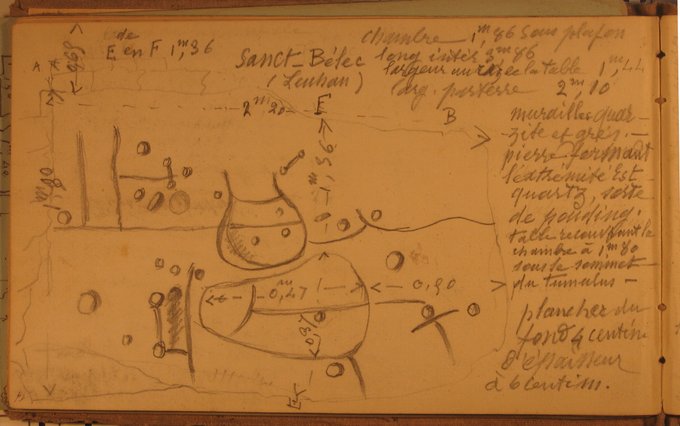 de
E en F 1,m36
Sanct-Bélec
(Leuhan)
chambre 1,m86 sous plafon
long intér 3m86
largeur au la table 1,m44
larg. par terre 2m,10
A
2m20
E
B
1m80
1m,36
0,m47
0,90
murailles quar-
zite et grès. -
pierre formant
l'extrémité Est
quartz, sorte
de pouding.
table recouvrant la
chambre à 1m80
sous le sommet
du tumulus -
plancher du
fond 4 centim
d'épaisseur
à 6 centim.